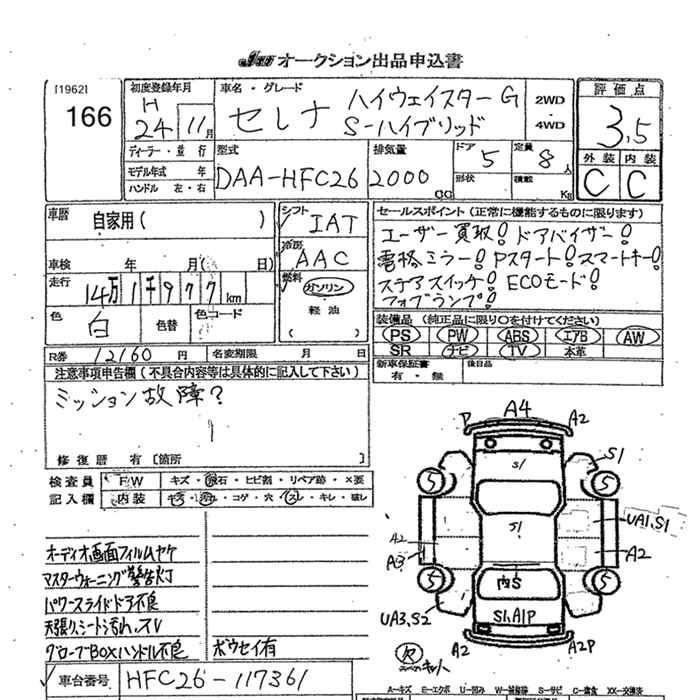 オークション出品申込書
[1962]
166
初度登録年月
H
24 11月
車名・グレード
セレナ ハイウェイスターG
S-ハイブリッド
2WD
・
4WD
評価点
3.5
外装 内装
C C
ディーラー・並行
モデル年式 年
ハンドル 左・右
型式
DAA-HFC26
排気量
2000
CC
ドア 5
形状
定員 8人
積載 Kg
車歴
自家用( )
車検 年 月( 日)
走行
14万1千977km
色
白
色替
色コード
シフト
IAT
冷房
AAC
燃料
ガソリン
軽油
( )
セールスポイント(正常に機能するものに限ります)
ユーザー買取! ドアバイザー!
電格ミラー! Pスタート! スマートキー!
ステアスイッチ! ECOモード!
フォグランプ!
装備品(純正品に限り○を付けてください)
PS PW ABS エアB AW
SR ナビ TV 本革
新車保証書
有・無
後日品
R券 12160円 名変期限 月 日
注意事項申告欄(不具合内容等は具体的に記入して下さい)
ミッション故障?
修復歴 有[箇所
検査員
記入欄
FW
キズ・飛石・ヒビ割・リペア跡・×要
内装
キズ・汚れ・コゲ・穴・スレ・キレ・破レ
オーディオ画面フィルムヤケ
マスターウォーニング警告灯
パワースライドドア不良
天張り、シート汚れ、スレ
グローブBOXハンドル不良
ボウセイ有
車台番号 HFC26-117361
P A4 A2
S1
S1
5 5
S1
UA1、S1
A2
A3
A2
5 5
内S
UA3、S2
S1、A1P
A2 A2P
欠
A-キズ E-エクボ U-凹み W-補修跡 S-サビ C-腐食 XX-交換済